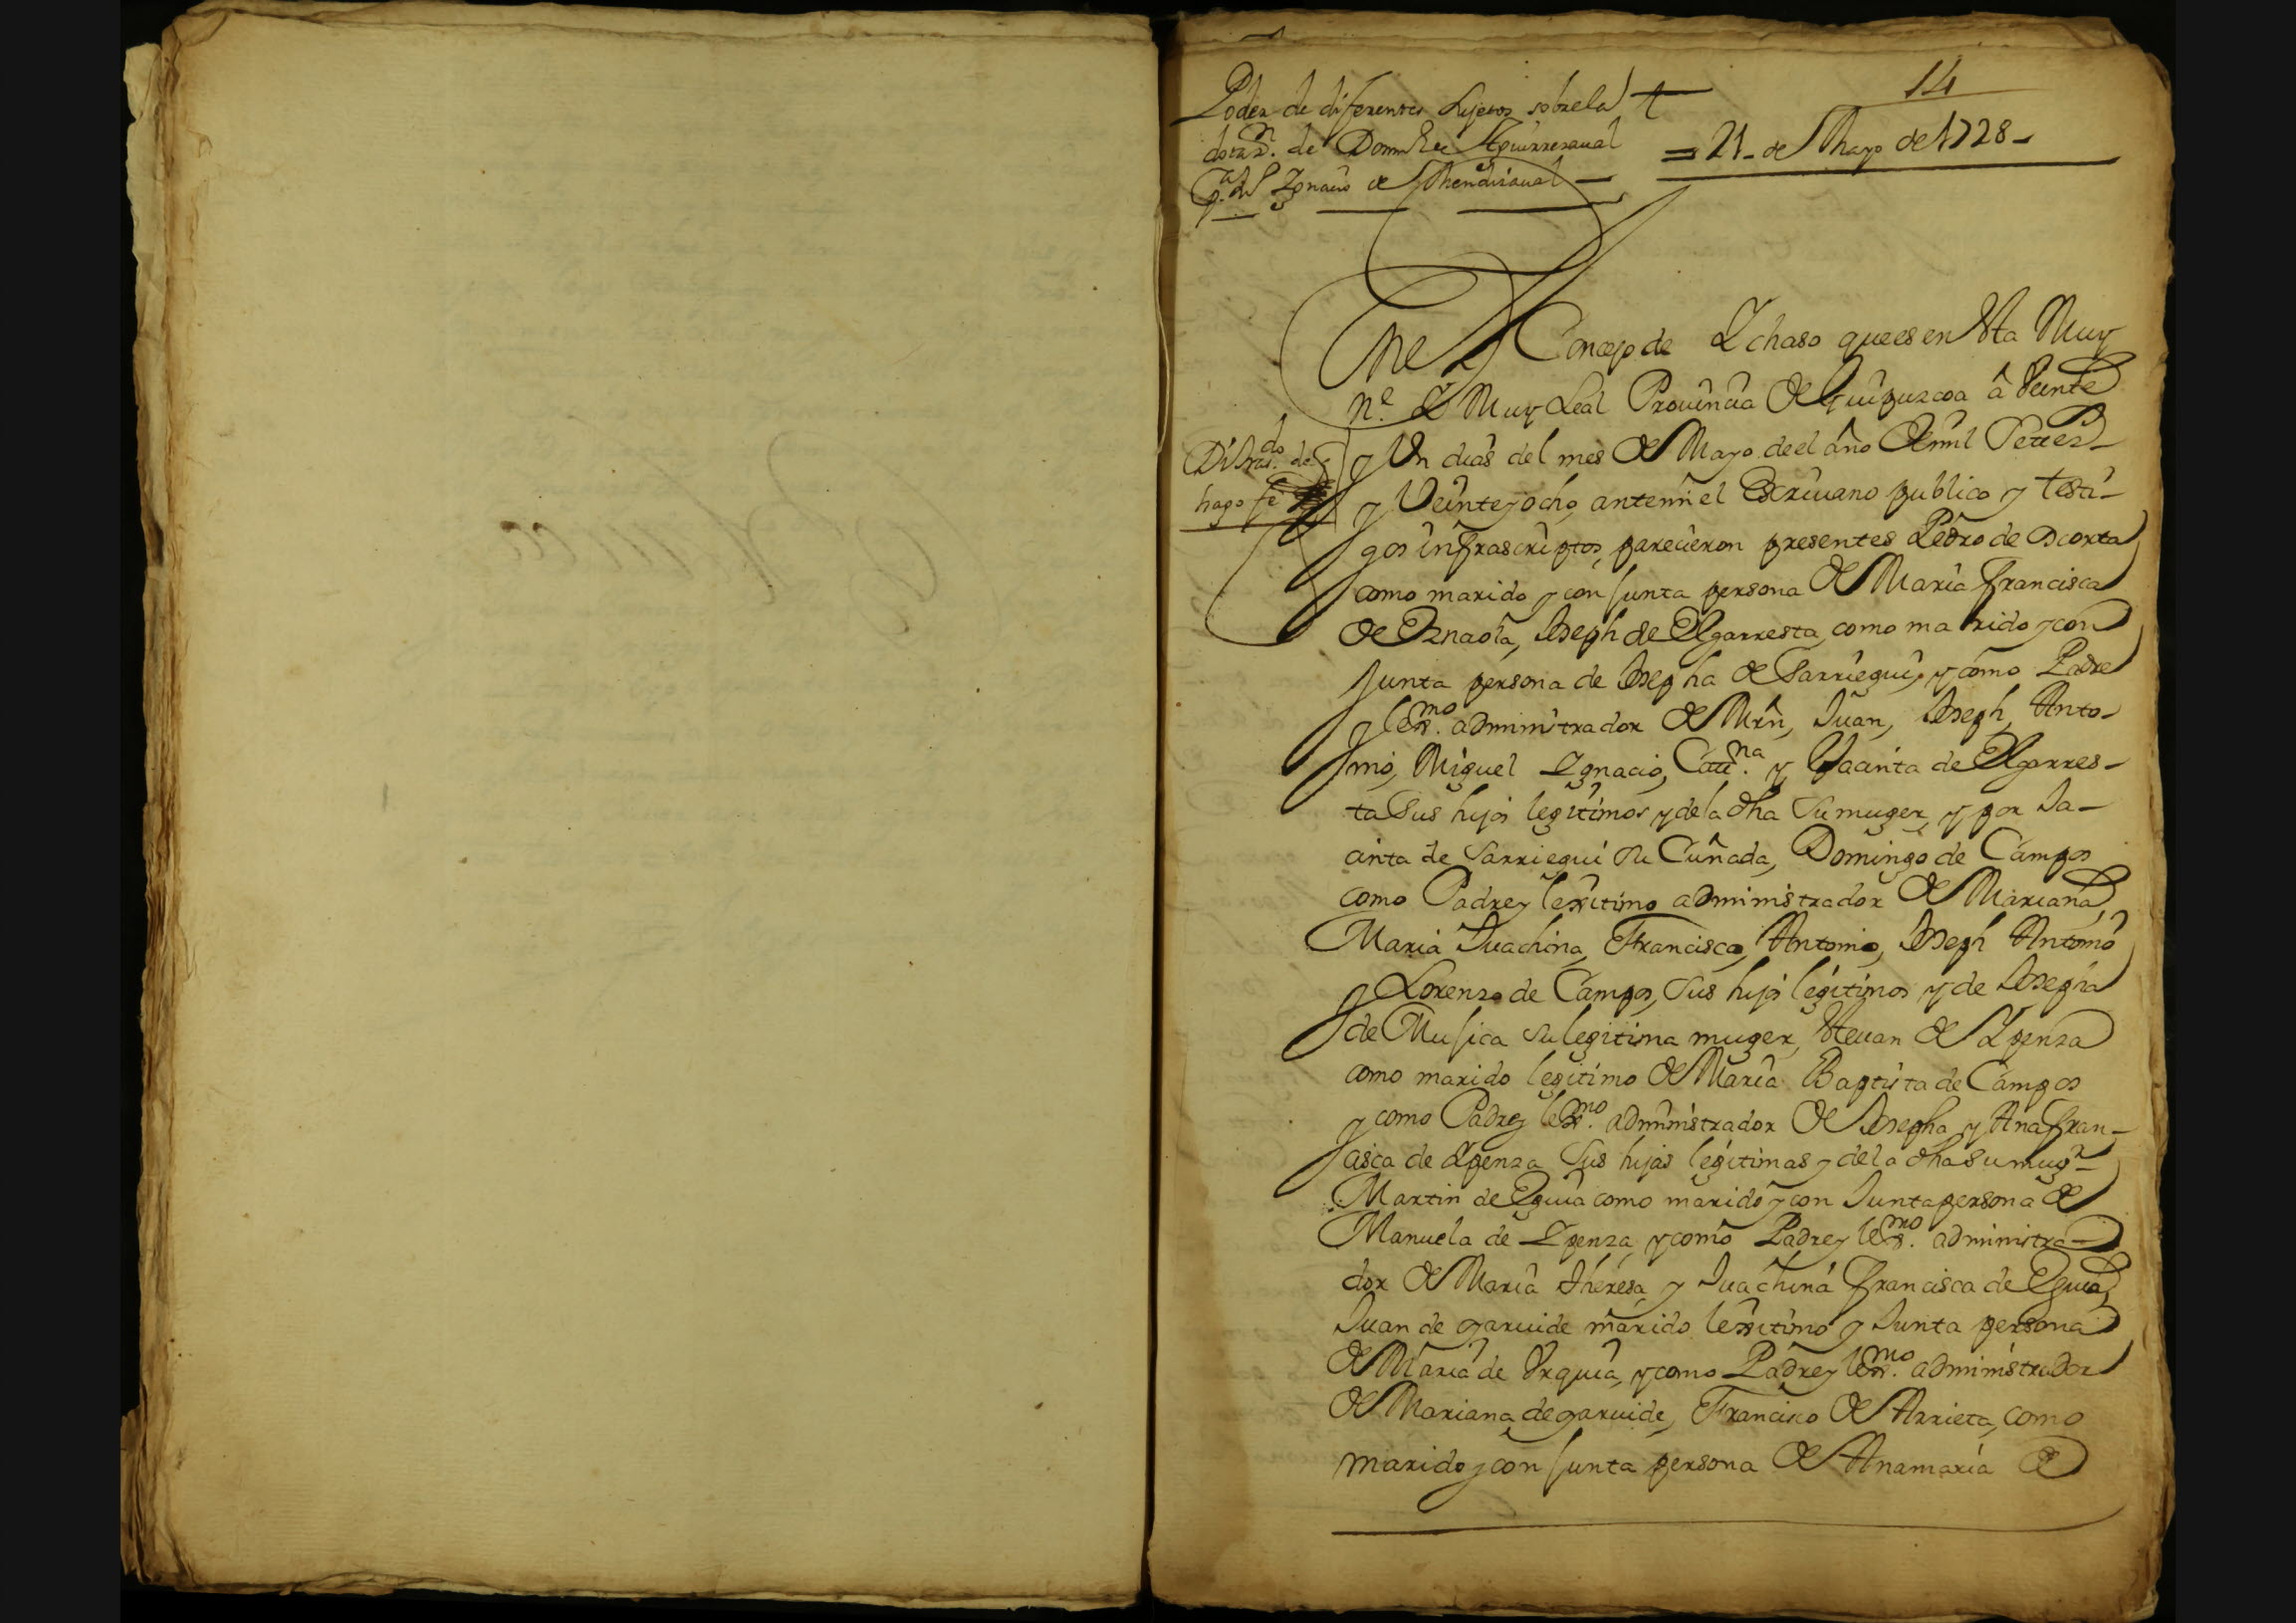 14
Poder de diferentes Sujetos sobre la
dotaz.n de Domin.. de Aguirresaual
p.a d.l Ignacio de Mendisaual
= 21 - de Mayo de 1728 -
En el Concejo de Ychaso que es en esta Muy
N.e Y Muy Leal Prouincia de Guipuzcoa â Veinte
y Un dias del mes de Mayo de el año de mil Setez.s
y Veinte y ocho, ante mi el Escriuano publico y testi-
gos infrascriptos, parecieron presentes Pedro de Dorta
como marido y conjunta persona de Maria francisca
de Oznaola, Joseph de Elgarresta, como marido y con
Junta persona de Josepha de Sarriegui, y como Padre
y lexmo. administrador de Mrn, Juan, Joseph, Anto-
nio, Miguel Ygnacio, Catt.na y Yacinta de Elgarres-
ta Sus hijos legitimos y de la dha su muger, y por Ja-
cinta de Sarriegui su Cuñada, Domingo de Campos
como Padre y lexitimo administrador de Mariana,
Maria Juachina, Francisco, Antonio, Joseph Antonio
y Lorenzo de Campos, Sus hijos legitimos y de Josepha
de Musica su legitima muger, Esteuan de Ypenza
como marido legitimo de Maria Baptista de Campos
y como Padre y lexmo. administrador de Josepha y Ana fran-
cisca de Ypenza Sus hijas legitimas y de la dha su mugr
Martin de Eguia como marido y con Junta persona de
Manuela de Ypenza, y como Padre y lexmo. administra-
dor de Maria theresa, y Juachina francisca de Eguia,
Juan de garuide marido lexitimo y Junta persona
de Maria de Vrquia, y como Padre y lexmo. administrador
de Mariana de garuide, Francisco de Arrieta, como
marido y con Junta persona de Anamaria de
do
hago fe